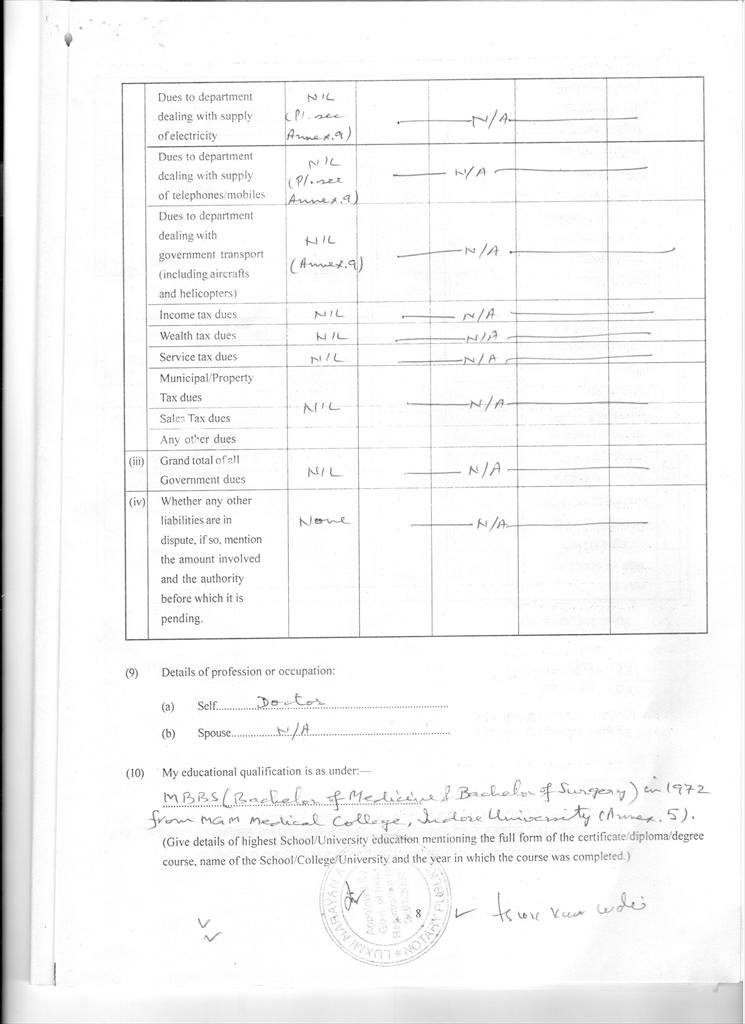 Dues to department NIL
dealing with supply (Pl. see N/A
of electricity Annex.9)
Dues to department NIL
dealing with supply (Pl. see N/A
of telephones/mobiles Annex.9)
Dues to department
dealing with NIL
government transport (Annex.9) N/A
(including aircrafts
and helicopters)
Income tax dues NIL N/A
Wealth tax dues NIL N/A
Service tax dues NIL N/A
Municipal/Property
Tax dues NIL N/A
Sales Tax dues
Any other dues
(iii) Grand total of all NIL N/A
Government dues
(iv) Whether any other
liabilities are in None N/A
dispute, if so, mention
the amount involved
and the authority
before which it is
pending.
(9) Details of profession or occupation:
(a) Self Doctor
(b) Spouse N/A
(10) My educational qualification is as under:—
MBBS (Bachelor of Medicine & Bachelor of Surgery) in 1972
from MGM Medical College, Indore University (Annex. 5).
(Give details of highest School/University education mentioning the full form of the certificate/diploma/degree
course, name of the School/College/University and the year in which the course was completed.)
8
LUXMI NARAYAN
NOTARY PUBLIC